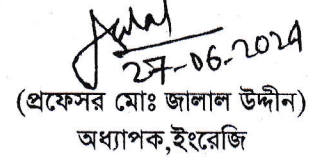 27-06-2024
(প্রফেসর মোঃ জালাল উদ্দীন)
অধ্যাপক,ইংরেজি